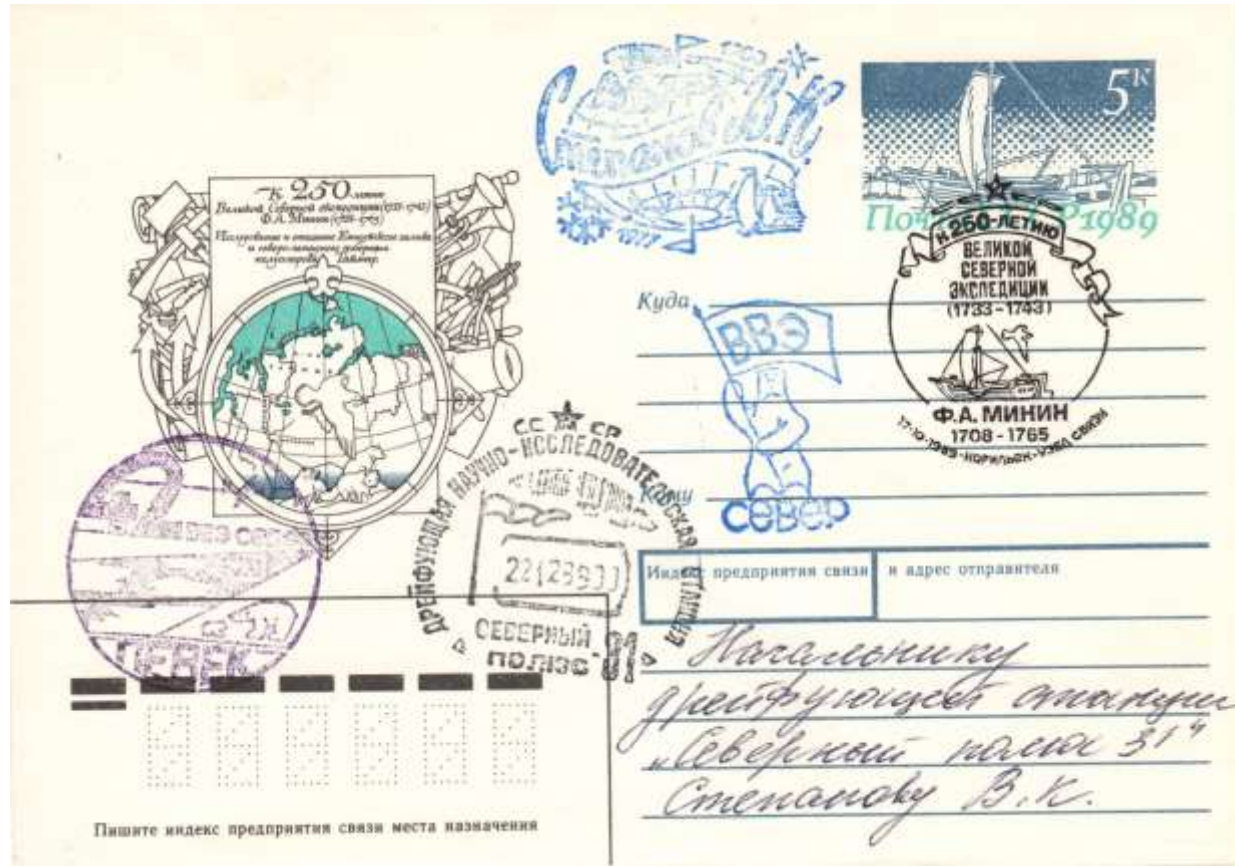 К 250 летию
Великой Северной экспедиции (1733-1743)
Ф.А. Минин
Исследование и описание Енисейского залива
и северо-западного побережья
полуострова Таймыр.
1977
5к
Почта 1989
К 250-ЛЕТИЮ
ВЕЛИКОЙ
СЕВЕРНОЙ
ЭКСПЕДИЦИИ
(1733-1743)
Ф.А. МИНИН
1708-1765
17·10·1989-НОРИЛЬСК-УЗЕЛ СВЯЗИ
Куда
ВВЭ
СЕВЕР
Кому
СССР
ДРЕЙФУЮЩАЯ НАУЧНО-ИССЛЕДОВАТЕЛЬСКАЯ СТАНЦИЯ
СЕВЕРНЫЙ
ПОЛЮС-31
Индекс предприятия связи и адрес отправителя
Начальнику
дрейфующей станции
„Северный полюс 31“
Степанову В.К.
Пишите индекс предприятия связи места назначения